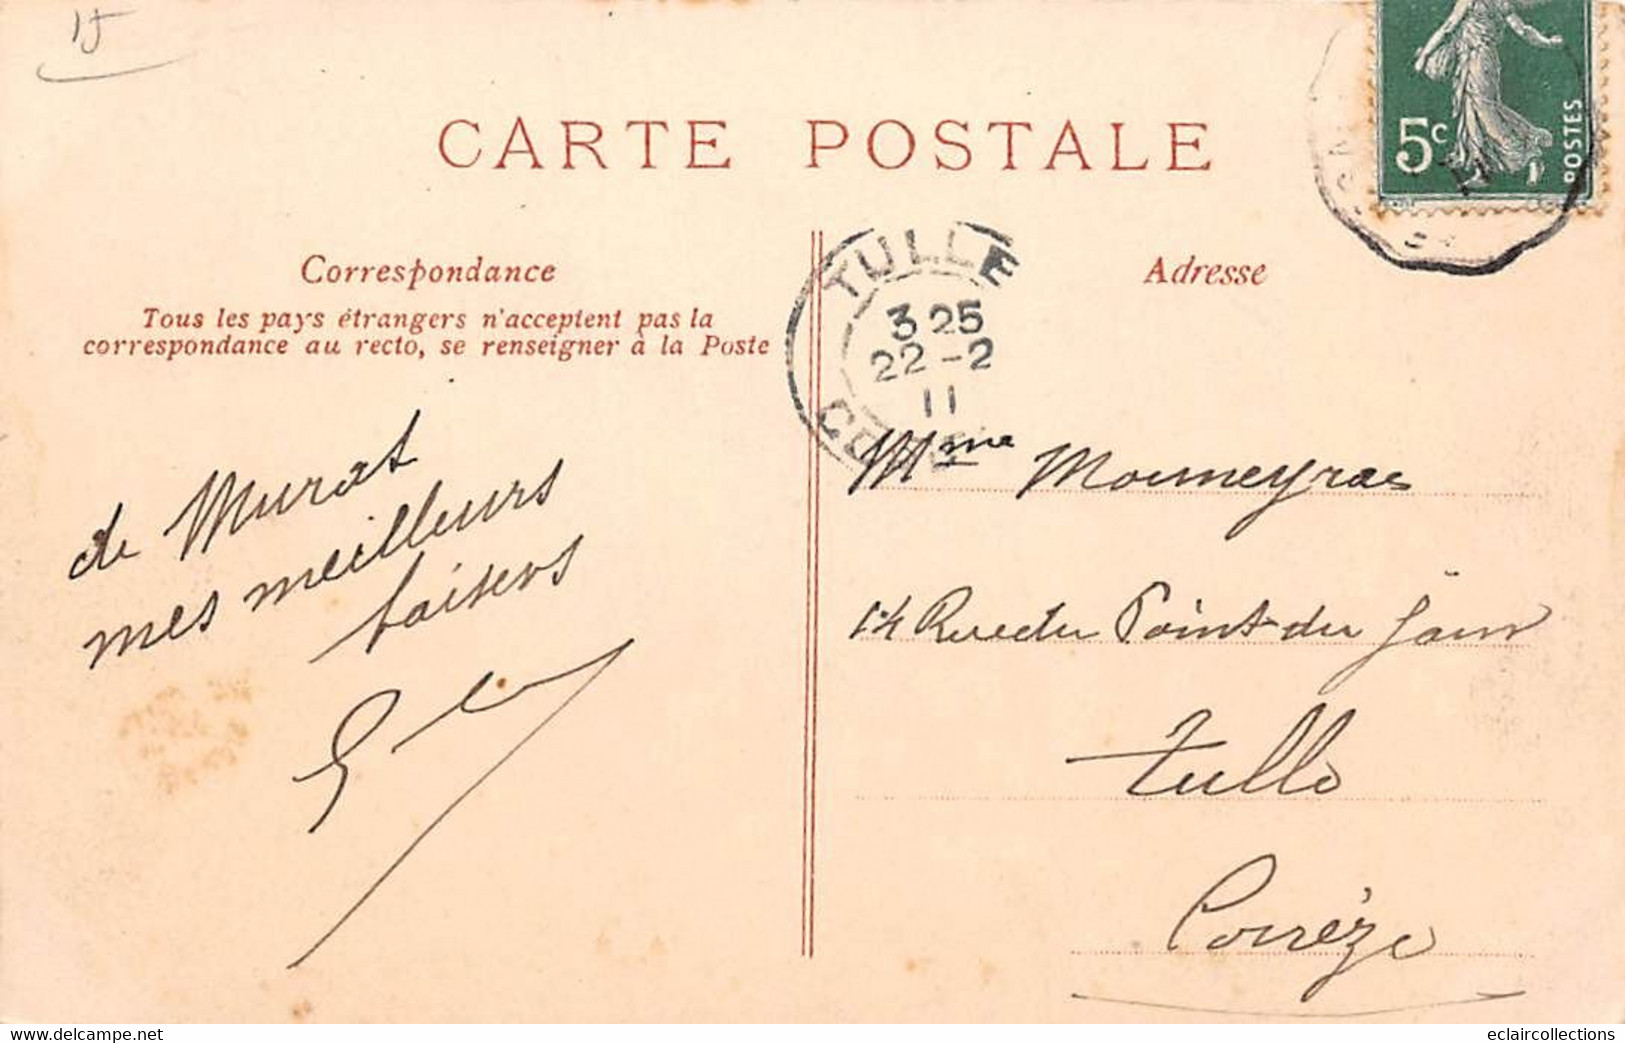 15
CARTE POSTALE
5c
POSTES
Correspondance
Tous les pays étrangers n'acceptent pas la
correspondance au recto, se renseigner à la Poste
TULLE
3 25
22-2
11
Adresse
de Murat
mes meilleurs
baisers
Mme
14 Rue du Point-du Jour
Tulle
Corrèze
eclaircollections